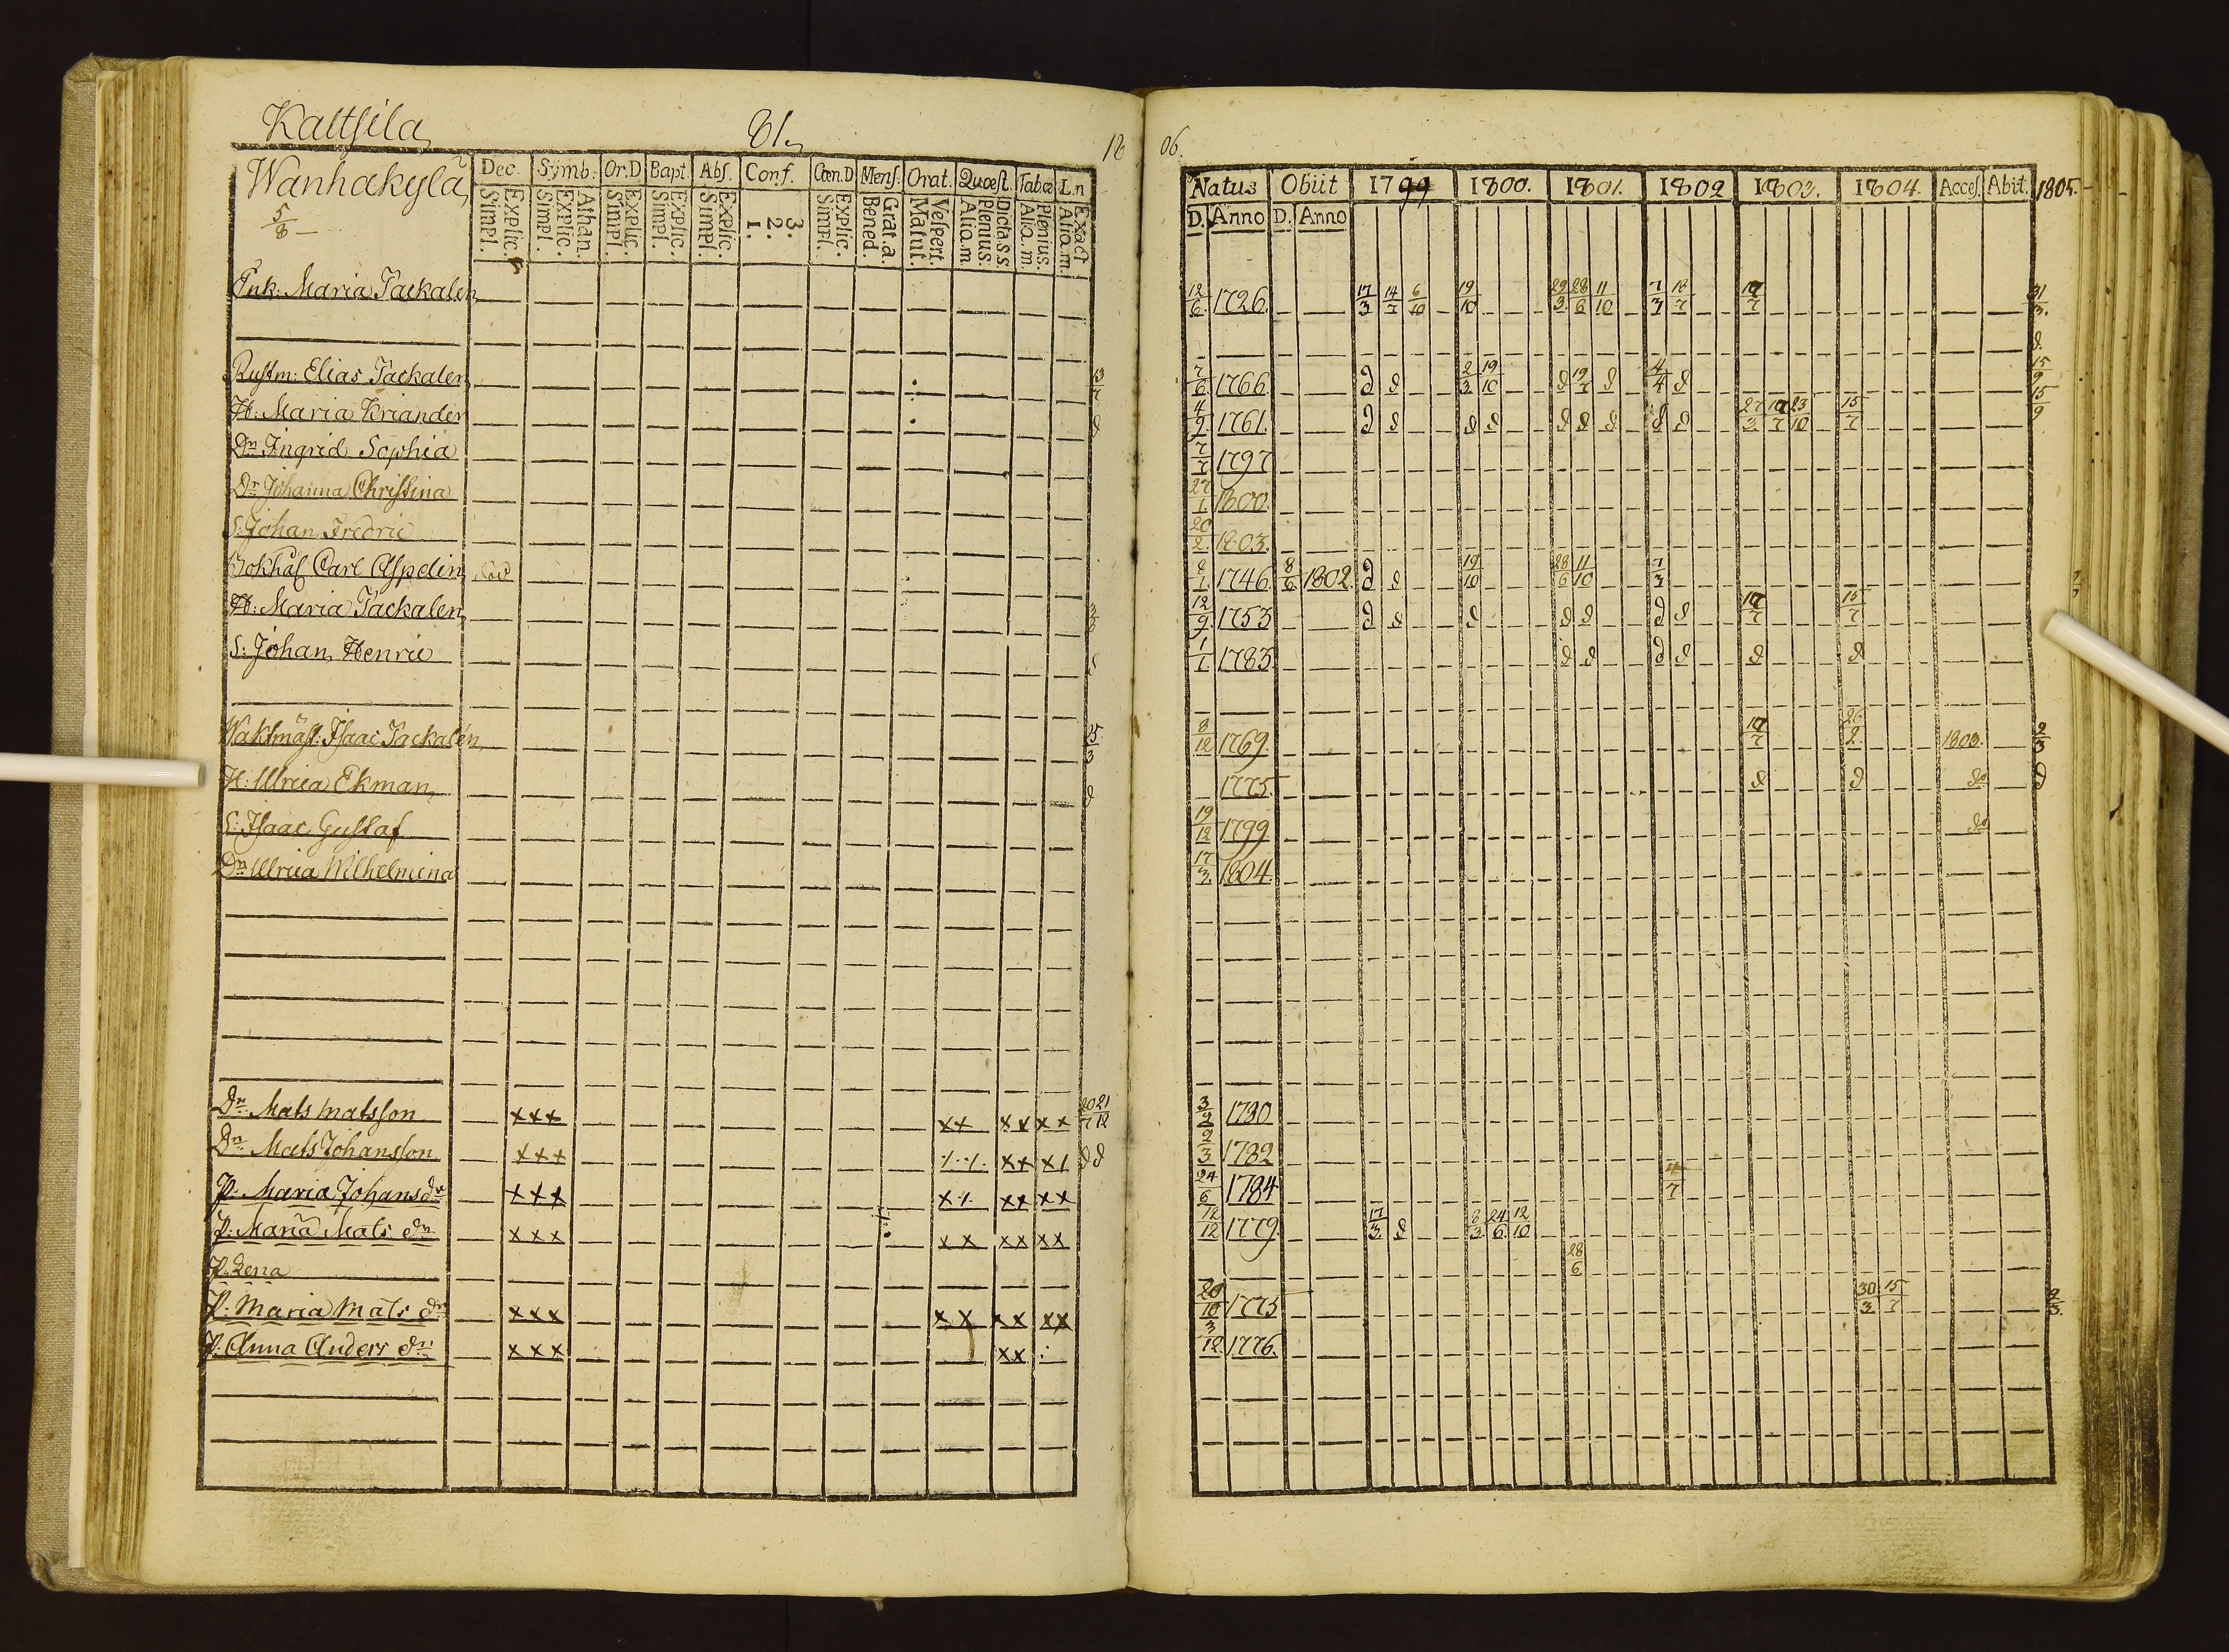 Kaltsila 81. 18 06.
Wanhakylä
5/8
Dec. Symb: Or.D Bapt. Abs. Conf. Cœn.D Mens. Orat. Quœst. Tabœ L.n
Simpl. Explic. Simpl. Explic. Athan. Simpl. Explic. Simpl. Explic. Simpl. Explic. 1. 2. 3. Simpl. Explic. Bened. Grat.a. Matut. Vespert. Alia.m. Plenius. Dicta s.s. Alia.m. Plenius. Alia.m. Exact
Natus Obiit 1799 1800. 1801. 1802 1803. 1804. Acces. Abit. 1805.
D. Anno D. Anno
Enk. Maria Tackalen 12/6. 1726. 17/3 14/7 6/10 19/10 29/3. 28/6 11/10 7/3 18/7 17/7 31/3.
Rustm: Elias Tackalen 13/7 7/6. 1766. d d 2/3 19/10 d 19/7 d 4/4 d d. 15/9
H: Maria Kriander d 4/9. 1761. d d d d d d d d d 27/3. 17/7 23/10 15/7 15/9
Dr Ingrid Sophia 7/7 1797
Dr Johanna Christina 27/1. 1800.
S: Johan Fredric 20/2. 1803.
Bokhål Carl Aspelin 8/1. 1746. 8/6 1802. d d 19/10 28/6 11/10 7/3
H: Maria Tackalen 12/9. 1753 d d d d d d d 17/7 15/7
S: Johan Henric d 1/1 1783. d d d d d d
Waktmäst: Isaac Tackalén 25/3 8/12 1769. 17/7 26/2. 1803. 2/3
H: Ulrica Ekman d 1775. d d do d
S: Isaac Gustaf 19/12 1799 do
Dr Ulrica Wilhelmina 17/3. 1804.
Dn Mats Matsson xxx xx xx xx 20/7 21/12 3/2 1780
Dn Mats Johansson xxx xx x d d 2/3 1782
P. Maria Johansdr xxx x xx xx 24/6 1784 4/7
P. Maria Mats dr xxx xx xx xx 12/12 1779. 17/3. d 8/3. 24/6. 12/10
P. Lena 28/6
P. Maria Mats dr xxx xx xx xx 20/10 1775 30/3 15/7 2/3.
P. Anna Anders dr xxx xx 3/12. 1776.